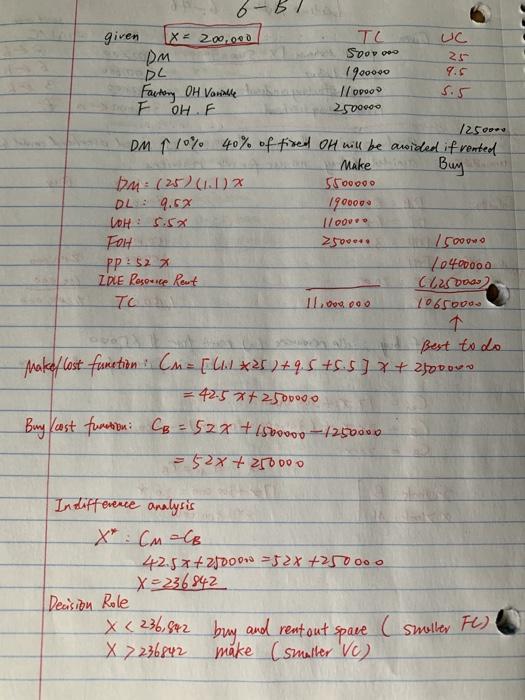 6-B1
given X = 200,000 TC UC
DM 5000 000 25
DL 1900000 9.5
Factory OH Variable 1100000 5.5
F OH. F 2500000
1250000
DM ↑ 10% 40% of fixed OH will be avoided if rented
Make Buy
DM: (25)(1.1)x 5500000
DL: 9.5x 1900000
VOH: 5.5x 1100000
FOH 2500000 1500000
PP: 52 x 10400000
IDLE Resource Rent (1,250000)
TC 11,000,000 10650000
↑
Best to do
Make/cost function: CM = [(1.1 × 25) + 9.5 + 5.5] x + 2500000
= 42.5 x + 2500000
Buy/cost function: CB = 52x + 1500000 - 1250000
= 52x + 250000
Indifference analysis
X* : CM = CB
42.5x + 2500000 = 52x + 250000
X = 236842
Decision Role
X < 236,842 buy and rent out space (smaller FC)
X > 236842 make (smaller VC)